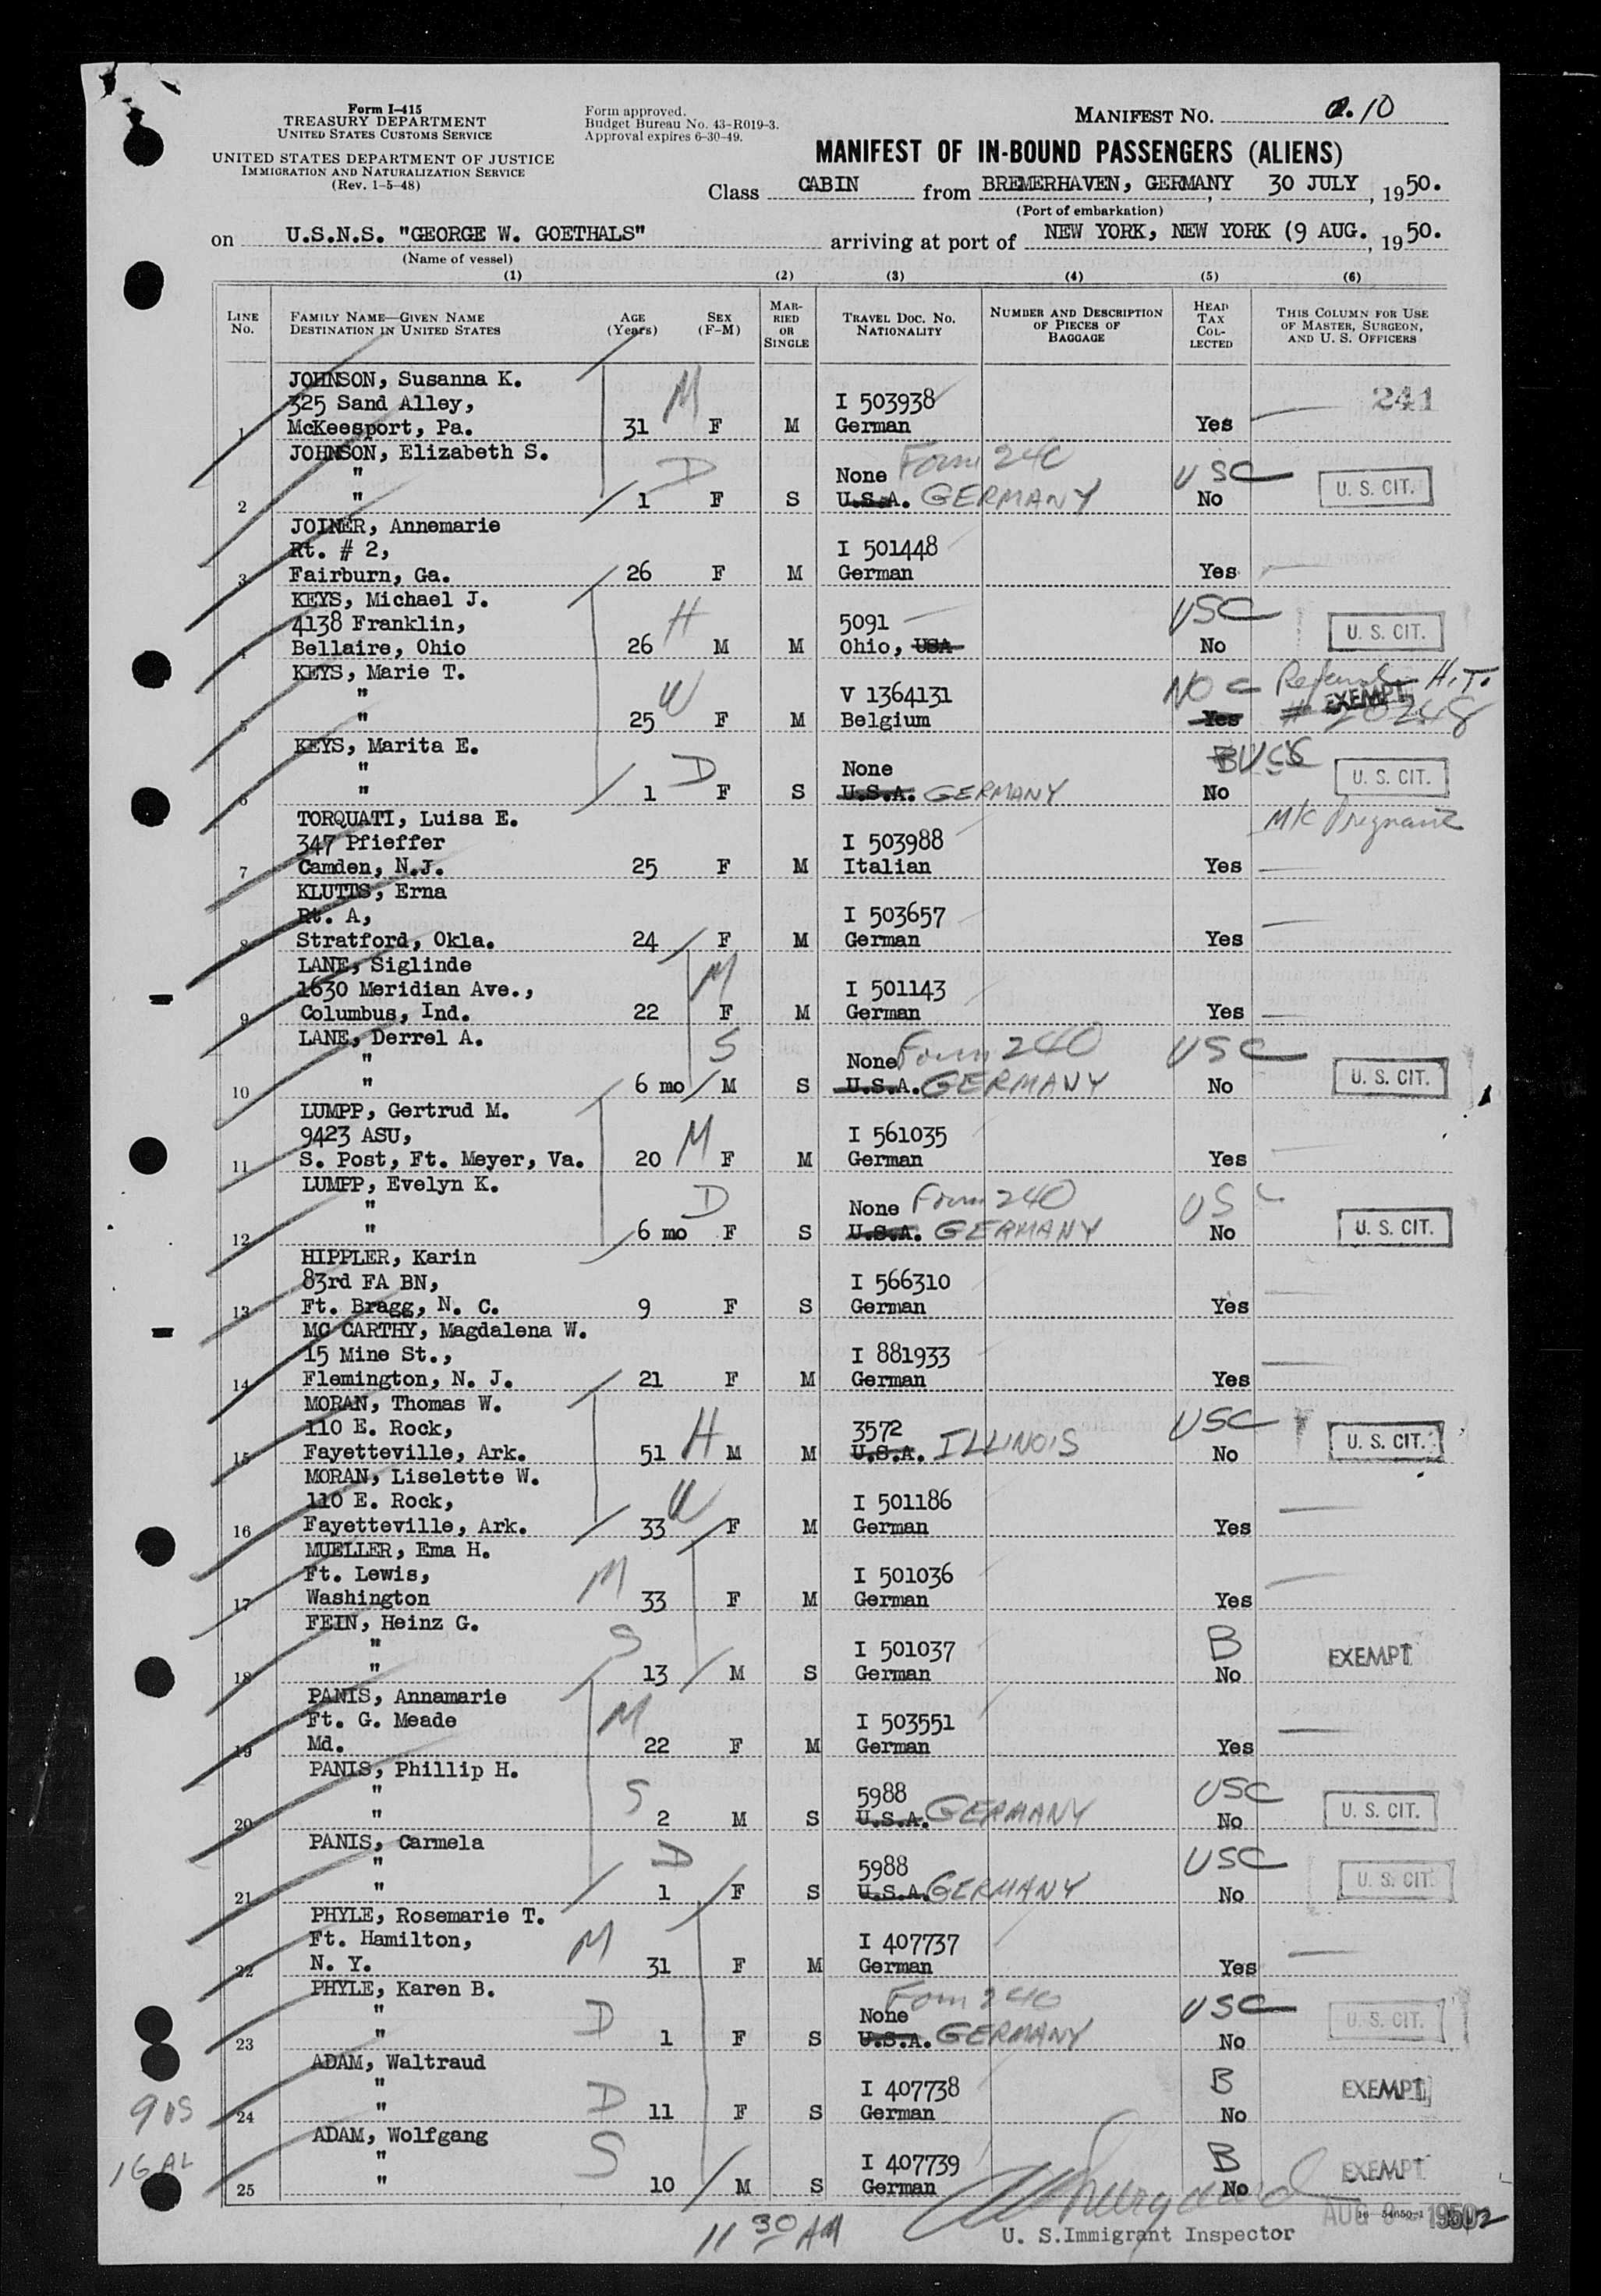 Form I-415
TREASURY DEPARTMENT
UNITED STATES CUSTOMS SERVICE
UNITED STATES DEPARTMENT OF JUSTICE
IMMIGRATION AND NATURALIZATION SERVICE
(Rev. 1-5-48)
Form approved.
Budget Bureau No. 43-R019-3.
Approval expires 6-30-49.
MANIFEST NO. 10
MANIFEST OF IN-BOUND PASSENGERS (ALIENS)
Class CABIN from BREMERHAVEN, GERMANY, 30 JULY, 1950.
(Port of embarkation)
on U.S.N.S. "GEORGE W. GOETHALS" arriving at port of NEW YORK, NEW YORK (9 AUG., 1950.
(Name of vessel)
(1) (2) (3) (4) (5) (6)
LINE No. FAMILY NAME—GIVEN NAME DESTINATION IN UNITED STATES AGE (Years) SEX (F-M) MARRIED OR SINGLE TRAVEL DOC. NO. NATIONALITY NUMBER AND DESCRIPTION OF PIECES OF BAGGAGE HEAD TAX COLLECTED THIS COLUMN FOR USE OF MASTER, SURGEON, AND U. S. OFFICERS
JOHNSON, Susanna K.
325 Sand Alley, M I 503938 241
1 McKeesport, Pa. 31 F M German Yes
JOHNSON, Elizabeth S.
" D None Form 240 USC U. S. CIT.
2 " 1 F S U.S.A. GERMANY No
JOINER, Annemarie
Rt. # 2, I 501448
3 Fairburn, Ga. 26 F M German Yes
KEYS, Michael J.
4138 Franklin, H 5091 USC U. S. CIT.
4 Bellaire, Ohio 26 M M Ohio, USA No
KEYS, Marie T.
" W V 1364131 NO Refund H.T. EXEMPT
5 " 25 F M Belgium Yes # 20248
KEYS, Marita E.
" D None U. S. CIT.
6 " 1 F S U.S.A. GERMANY No
TORQUATI, Luisa E. M/C Pregnant
347 Pfieffer I 503988
7 Camden, N.J. 25 F M Italian Yes
KLUTTS, Erna
Rt. A, I 503657
8 Stratford, Okla. 24 F M German Yes
LANE, Siglinde
1630 Meridian Ave., M I 501143
9 Columbus, Ind. 22 F M German Yes
LANE, Derrel A.
" S None Form 240 USC U. S. CIT.
10 " 6 mo M S U.S.A. GERMANY No
LUMPP, Gertrud M.
9423 ASU, M I 561035
11 S. Post, Ft. Meyer, Va. 20 F M German Yes
LUMPP, Evelyn K.
" D None Form 240 USC U. S. CIT.
12 " 6 mo F S U.S.A. GERMANY No
HIPPLER, Karin
83rd FA BN, I 566310
13 Ft. Bragg, N. C. 9 F S German Yes
MC CARTHY, Magdalena W.
15 Mine St., I 881933
14 Flemington, N. J. 21 F M German Yes
MORAN, Thomas W.
110 E. Rock, H 3572 USC U. S. CIT.
15 Fayetteville, Ark. 51 M M U.S.A. ILLINOIS No
MORAN, Liselette W.
110 E. Rock, W I 501186
16 Fayetteville, Ark. 33 F M German Yes
MUELLER, Ema H.
Ft. Lewis, M I 501036
17 Washington 33 F M German Yes
FEIN, Heinz G.
" S I 501037 B EXEMPT
18 " 13 M S German No
PANIS, Annamarie
Ft. G. Meade M I 503551
19 Md. 22 F M German Yes
PANIS, Phillip H.
" S 5988 USC U. S. CIT.
20 " 2 M S U.S.A. GERMANY No
PANIS, Carmela
" D 5988 USC U. S. CIT.
21 " 1 F S U.S.A. GERMANY No
PHYLE, Rosemarie T.
Ft. Hamilton, M I 407737
22 N. Y. 31 F M German Yes
PHYLE, Karen B.
" D None Form 240 USC U. S. CIT.
23 " 1 F S U.S.A. GERMANY No
ADAM, Waltraud
" D I 407738 B EXEMPT
24 " 11 F S German No
ADAM, Wolfgang
" S I 407739 B EXEMPT
25 " 10 M S German No
9 US
16 AL
11 30 AM
U. S. Immigrant Inspector
AUG 9 1950
16-54650-1